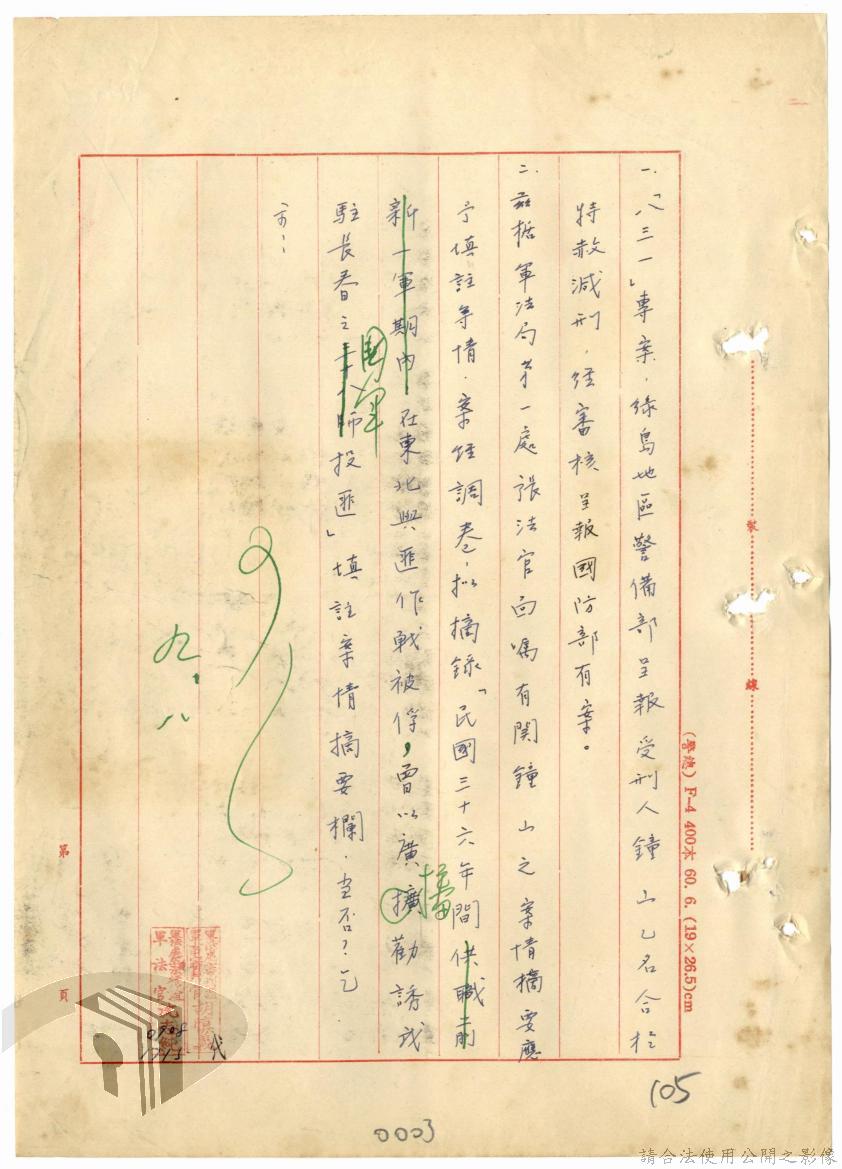 一、「八三一」專案，綠島地區警備部呈報受刑人鐘山乙名合於
特赦減刑，經審核呈報國防部有案。
二、茲據軍法局第一處張法官面囑有関鐘山之案情摘要應
予填註等情，案經調卷，拟摘錄「民國三十六年間供職前
新一軍期內，在東北與匪作戰被俘，曾以廣擴勸誘我
播
駐長春之三八師投匪」填註案情摘要欄，当否？乞
國軍
示：
九、八
裝
線
(學德) F-4 400本 60. 6. (19×26.5)cm
第
頁
軍法官
0908
1715
代
105
0003
請合法使用公開之影像